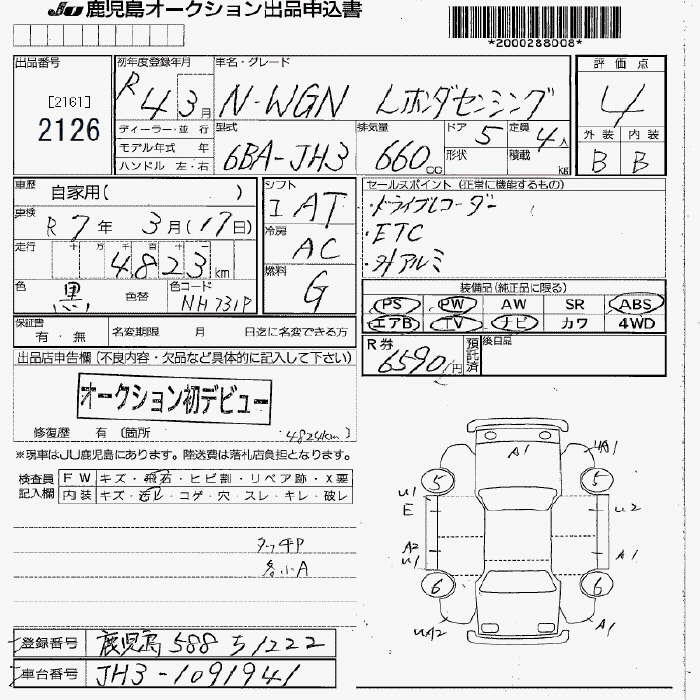 JU 鹿児島オークション出品申込書
*2000288008*
出品番号
[2161]
2126
初年度登録年月
R 4 3月
ディーラー・並 行
モデル年式 年
ハンドル 左・右
車名・グレード
N-WGN Lホンダセンシング
型式
6BA-JH3
排気量
660cc
ドア 5
形状
定員 4人
積載 kg
評価点
4
外装 内装
B B
車歴 自家用( )
車検 R 7年 3月(17日)
走行 十 万 千 百 十
4823km
色 黒 色替
色コード NH731P
シフト
I AT
冷房
AC
燃料
G
セールスポイント (正常に機能するもの)
・ドライブレコーダー
・ETC
・外アルミ
装備品(純正品に限る)
PS PW AW SR ABS
エアB TV ナビ カワ 4WD
保証書
有・無
名変期限 月 日迄に名変できる方
R券
6590円
預託済
後日品
出品店申告欄(不良内容・欠品など具体的に記入して下さい)
オークション初デビュー
修復歴 有 (箇所
4824km)
※現車はJU鹿児島にあります。陸送費は落札店負担となります。
検査員記入欄
FW キズ・飛石・ヒビ割・リペア跡・X要
内装 キズ・汚レ・コゲ・穴・スレ・キレ・破レ
タッチP
各小A
A1
4A1
5 5
U1
E
U2
A2
U1
A1
6 6
A1
登録番号 鹿児島 588 ち 1222
車台番号 JH3-1091941